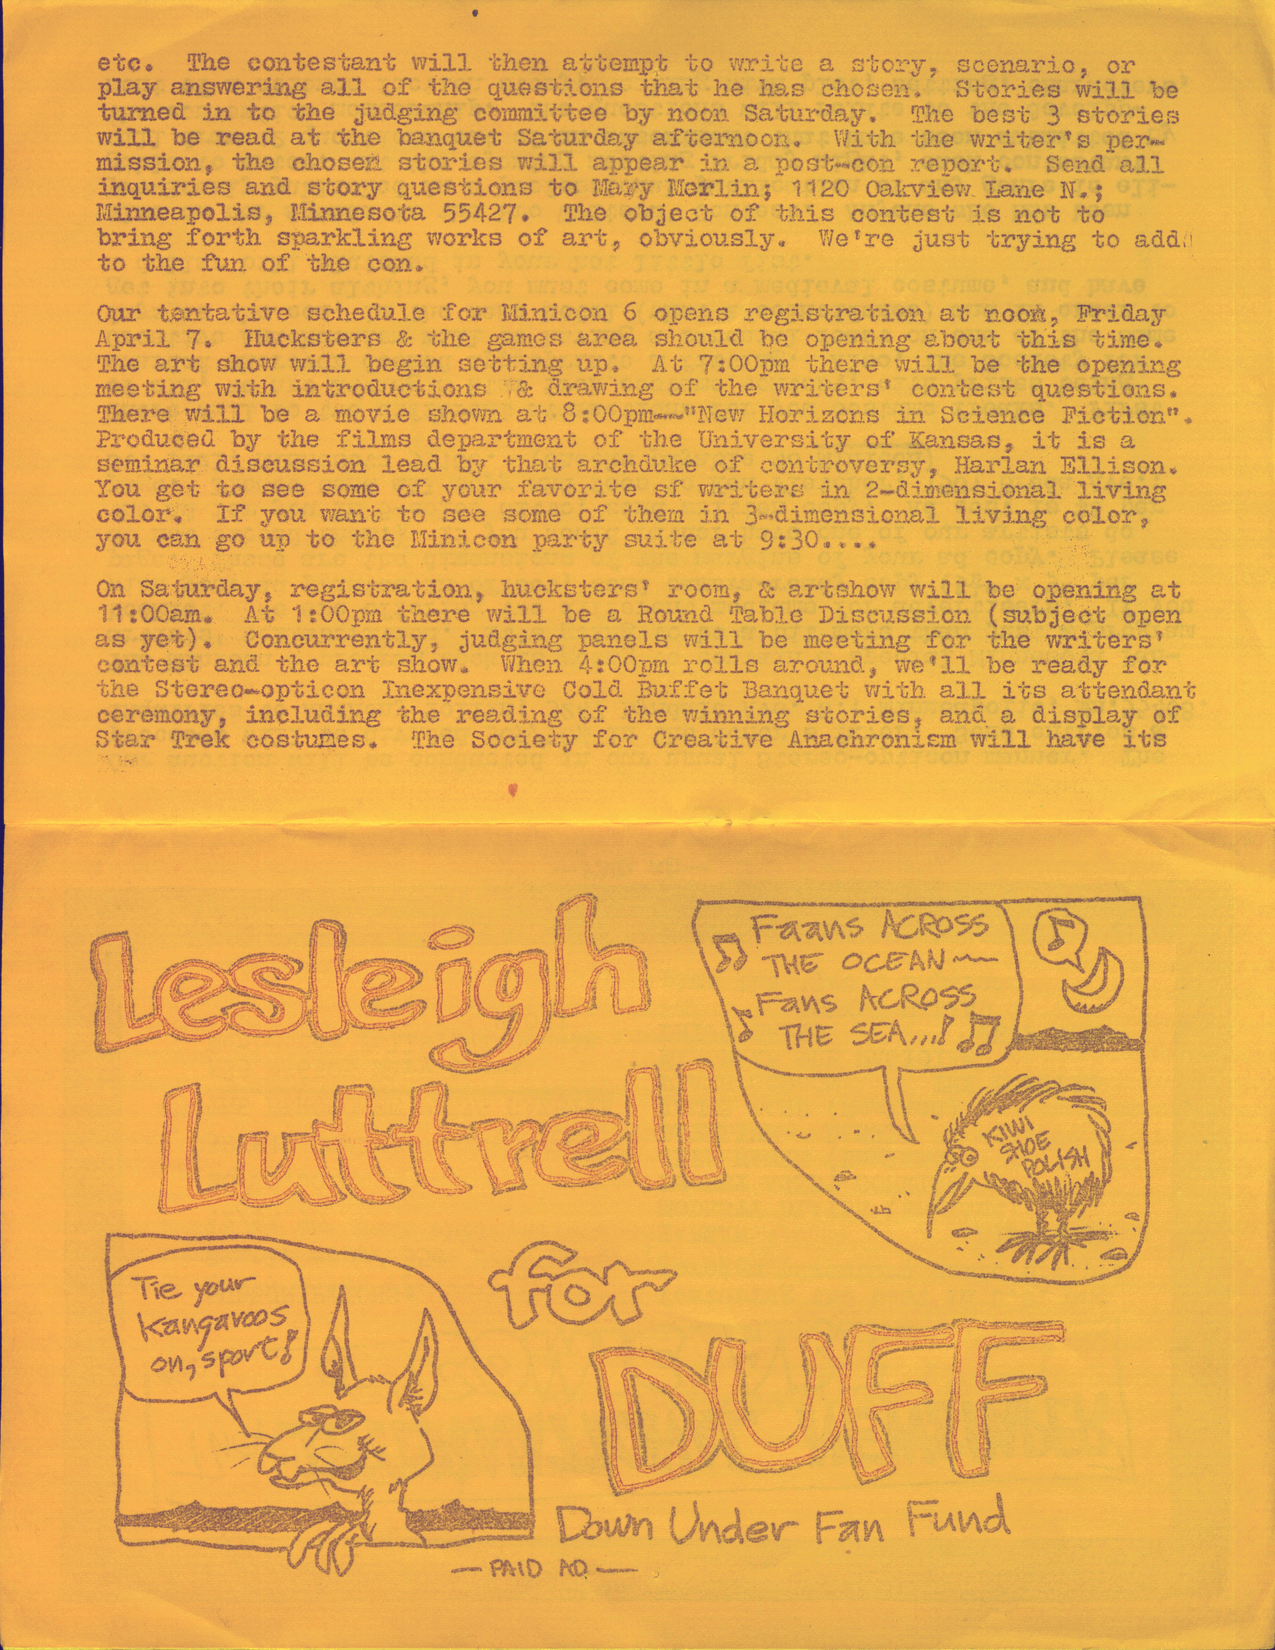 etc.  The contestant will then attempt to write a story, scenario, or
play answering all of the questions that he has chosen.  Stories will be
turned in to the judging committee by noon Saturday.  The best 3 stories
will be read at the banquet Saturday afternoon.  With the writer's per-
mission, the chosen stories will appear in a post-con report.  Send all
inquiries and story questions to Mary Merlin; 1120 Oakview Lane N.;
Minneapolis, Minnesota 55427.  The object of this contest is not to
bring forth sparkling works of art, obviously.  We're just trying to add
to the fun of the con.
Our tentative schedule for Minicon 6 opens registration at noon, Friday
April 7.  Hucksters & the games area should be opening about this time.
The art show will begin setting up.  At 7:00pm there will be the opening
meeting with introductions & drawing of the writers' contest questions.
There will be a movie shown at 8:00pm--"New Horizons in Science Fiction".
Produced by the films department of the University of Kansas, it is a
seminar discussion lead by that archduke of controversy, Harlan Ellison.
You get to see some of your favorite sf writers in 2-dimensional living
color.  If you want to see some of them in 3-dimensional living color,
you can go up to the Minicon party suite at 9:30....
On Saturday, registration, hucksters' room, & artshow will be opening at
11:00am.  At 1:00pm there will be a Round Table Discussion (subject open
as yet).  Concurrently, judging panels will be meeting for the writers'
contest and the art show.  When 4:00pm rolls around, we'll be ready for
the Stereo-opticon Inexpensive Cold Buffet Banquet with all its attendant
ceremony, including the reading of the winning stories, and a display of
Star Trek costumes.  The Society for Creative Anachronism will have its
Lesleigh
Luttrell
for
DUFF
Down Under Fan Fund
Faans ACROSS
THE OCEAN~
Fans ACROSS
THE SEA...!
KIWI
SHOE
POLISH
Tie your
Kangaroos
on, sport!
— PAID AD —